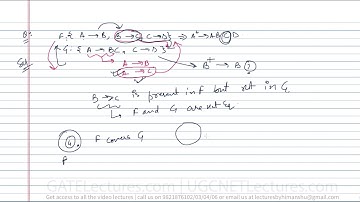 Q: F: { A → B, B → C, C → D } ⇒ A⁺ → A B C D
G: { A → BC, C → D }
Sol: A → B
A → C
B⁺ → B
B → C is present in F but not in G
↳ F and G are not Eq
G. F covers G
F
GATELectures.com | UGCNETLectures.com
Get access to all the video lectures | call us on 9821876102/03/04/06 or email us at lecturesbyhimanshu@gmail.com